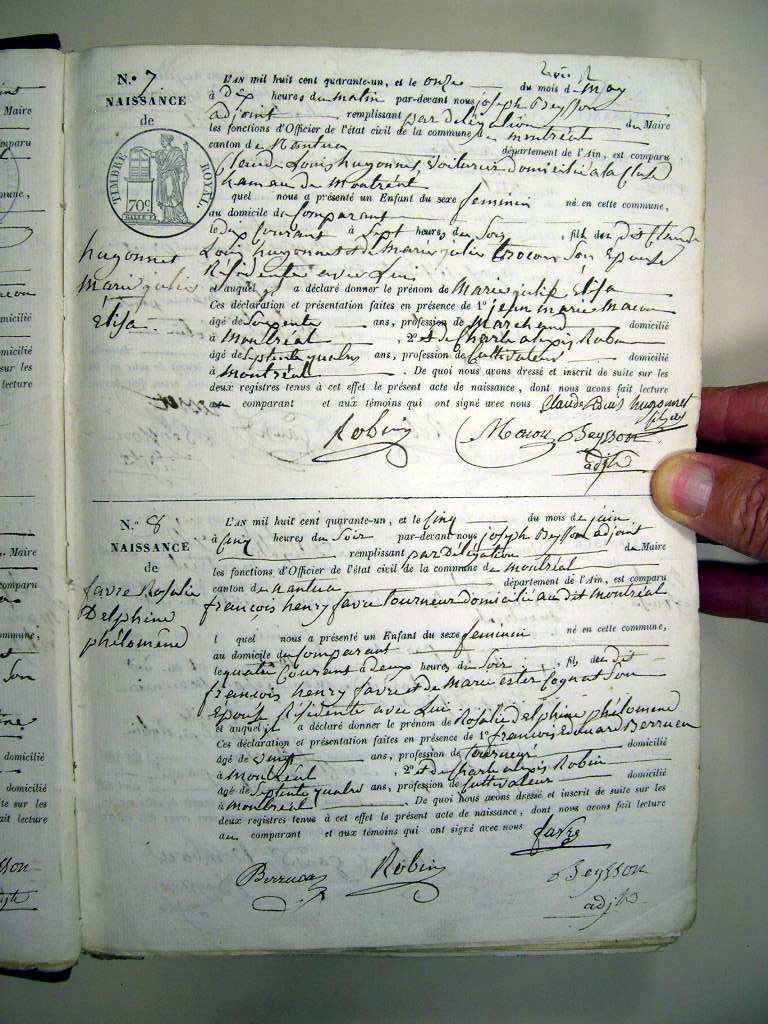 N.° 7
NAISSANCE
de
TIMBRE ROYAL
70c
hugonnet
Marie julie
Élisa.
L'AN mil huit cent quarante-un, et le onze du mois de May
à dix heures du matin par-devant nous joseph Beysson
adjoint remplissant par délégation du Maire
les fonctions d'Officier de l'état civil de la commune de montréal
canton de Nantua département de l'Ain, est comparu
Claude Louis hugonnet, Voiturier domicilié à la Cluse
hameau de Montréal
quel nous a présenté un Enfant du sexe feminin né en cette commune,
au domicile du Comparant
le dix Courant à Sept heures du Soir, fils du dit Claude
Louis hugonnet et de Marie julie son Épouse
Résidente avec Lui
et auquel il a déclaré donner le prénom de Marie julie Élisa
Ces déclaration et présentation faites en présence de 1° jean marie Macon
âgé de Soixante ans, profession de Marchand domicilié
à Montréal, 2° et de Charle alexis Robin
âgé de Septente quatre ans, profession de Cultivateur domicilié
à Montréal. De quoi nous avons dressé et inscrit de suite sur les
deux registres tenus à cet effet le présent acte de naissance, dont nous avons fait lecture
au comparant et aux témoins qui ont signé avec nous Claude Louis hugonnet
Robin Macon Beysson
adjt
N.° 8
NAISSANCE
de
favre Rosalie
Delphine
phélomène
L'AN mil huit cent quarante-un, et le Cinq du mois de juin
à Cinq heures du Soir par-devant nous joseph Beysson adjoint
remplissant par Délégation du Maire
les fonctions d'Officier de l'état civil de la commune de montréal
canton de nantua département de l'Ain, est comparu
françois henry favre tourneur domicilié au dit montréal
l quel nous a présenté un Enfant du sexe feminin né en cette commune,
au domicile du Comparant
le quatre Courant à deux heures du Soir, fils du dit
francois henry favre et de Marie ester Cognat son
Epouse Résidente avec Lui
et auquel il a déclaré donner le prénom de Rosalie delphine phélomène
Ces déclaration et présentation faites en présence de 1° francois Edouard Berrucaz
âgé de Vingt ans, profession de tourneur domicilié
à Montréal, 2° et de Charle alexis Robin
âgé de Septente quatre ans, profession de Cultivateur domicilié
à Montréal. De quoi nous avons dressé et inscrit de suite sur les
deux registres tenus à cet effet le présent acte de naissance, dont nous avons fait lecture
au comparant et aux témoins qui ont signé avec nous favre
Berrucaz Robin Beysson
adjt